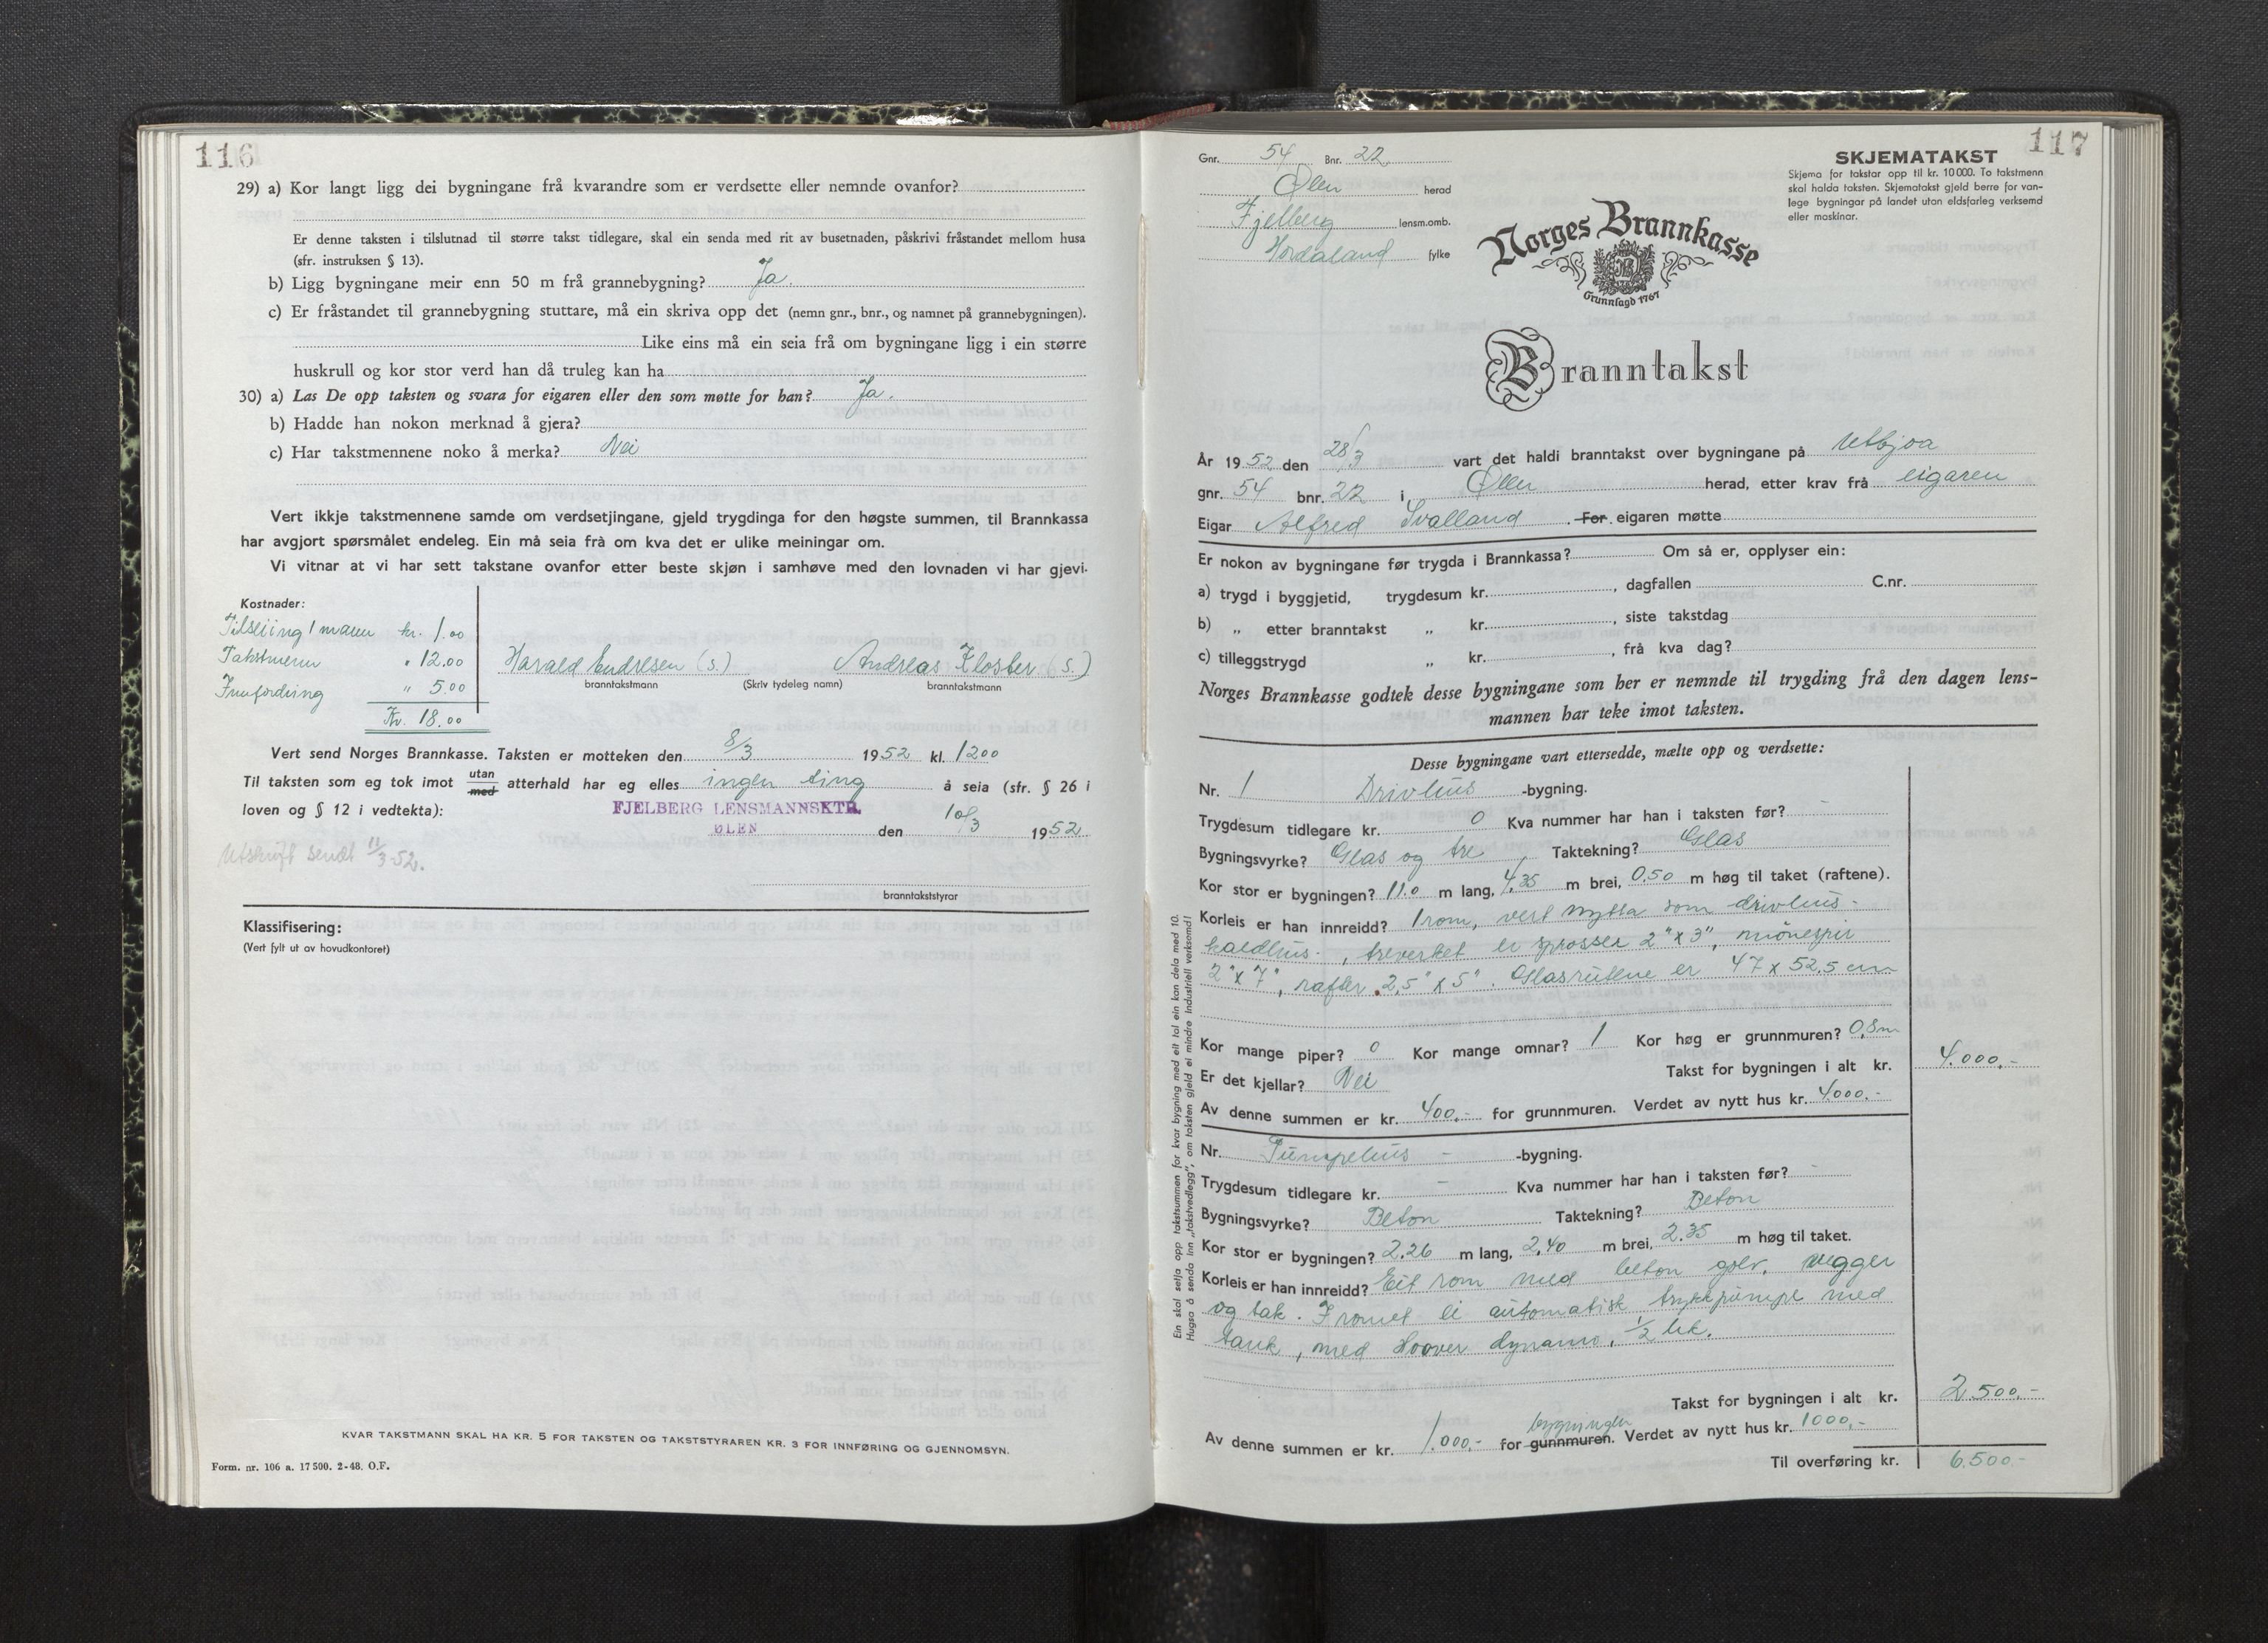 116
29) a) Kor langt ligg dei bygningane frå kvarandre som er verdsette eller nemnde ovanfor?
Er denne taksten i tilslutnad til større takst tidlegare, skal ein senda med rit av busetnaden, påskrivi fråstandet mellom husa
(sfr. instruksen § 13).
b) Ligg bygningane meir enn 50 m frå grannebygning? Ja.
c) Er fråstandet til grannebygning stuttare, må ein skriva opp det (nemn gnr., bnr., og namnet på grannebygningen).
Like eins må ein seia frå om bygningane ligg i ein større
huskrull og kor stor verd han då truleg kan ha
30) a) Las De opp taksten og svara for eigaren eller den som møtte for han? Ja.
b) Hadde han nokon merknad å gjera?
c) Har takstmennene noko å merka? Nei
Vert ikkje takstmennene samde om verdsetjingane, gjeld trygdinga for den høgste summen, til Brannkassa
har avgjort spørsmålet endeleg. Ein må seia frå om kva det er ulike meiningar om.
Vi vitnar at vi har sett takstane ovanfor etter beste skjøn i samhøve med den lovnaden vi har gjevi.
Kostnader:
Tilseiing 1 mann kr. 1.00
Takstmenn " 12.00
Innfordring " 5.00
Kr. 18.00
Harald Endresen (s.) Andreas Kloster (s.)
branntakstmann (Skriv tydeleg namn) branntakstmann
Vert send Norges Brannkasse. Taksten er motteken den 8/3 1952 kl. 1200
Til taksten som eg tok imot utan med atterhald har eg elles ingen ting å seia (sfr. § 26 i
loven og § 12 i vedtekta):
FJELBERG LENSMANNSKTR.
ØLEN den 10/3 1952
Utskrift sendt 11/3-52.
branntakststyrar
Klassifisering:
(Vert fylt ut av hovudkontoret)
KVAR TAKSTMANN SKAL HA KR. 5 FOR TAKSTEN OG TAKSTSTYRAREN KR. 3 FOR INNFØRING OG GJENNOMSYN.
Form. nr. 106 a. 17 500. 2-48. O.F.
117
Gnr. 54 Bnr. 22.
Ølen herad
Fjelberg lensm.omb.
Hordaland fylke
SKJEMATAKST
Skjema for takstar opp til kr. 10 000. To takstmenn
skal halda taksten. Skjematakst gjeld berre for van-
lege bygningar på landet utan eldsfarleg verksemd
eller maskinar.
Norges Brannkasse
Grunnlagd 1767
Branntakst
År 1952 den 28/3 vart det haldi branntakst over bygningane på Utbjoa
gnr. 54 bnr. 22 i Ølen herad, etter krav frå eigaren
Eigar Alfred Svalland. For eigaren møtte
Er nokon av bygningane før trygda i Brannkassa? Om så er, opplyser ein:
a) trygd i byggjetid, trygdesum kr. , dagfallen C.nr.
b) „ etter branntakst „ kr. , siste takstdag
c) tilleggstrygd „ kr. , frå kva dag?
Norges Brannkasse godtek desse bygningane som her er nemnde til trygding frå den dagen lens-
mannen har teke imot taksten.
Desse bygningane vart ettersedde, mælte opp og verdsette:
Nr. 1 Drivhus -bygning.
Trygdesum tidlegare kr. 0 Kva nummer har han i taksten før? -
Bygningsvyrke? Glas og tre Taktekning? Glas
Kor stor er bygningen? 11.0 m lang, 4,35 m brei, 0,50 m høg til taket (raftene).
Korleis er han innreidd? 1 rom, vert nytta som drivhus -
kaldhus -, treverket er sprosser 2" x 3", mønespir
2" x 7", rafter 2,5" x 5". Glasrutene er 47 x 52,5 cm
Kor mange piper? 0 Kor mange omnar? 1 Kor høg er grunnmuren? 0,8m
Er det kjellar? Nei Takst for bygningen i alt kr. 4.000.-
Av denne summen er kr. 400,- for grunnmuren. Verdet av nytt hus kr. 4.000.-
Nr. Pumpehus - -bygning.
Trygdesum tidlegare kr. - Kva nummer har han i taksten før? -
Bygningsvyrke? Beton Taktekning? Beton
Kor stor er bygningen? 2.26 m lang, 2.40 m brei, 2.35 m høg til taket.
Korleis er han innreidd? Eit rom med beton golv, vegger
og tak. I romet er automatisk trykkpumpe med
tank, med Hoover dynamo, 1/2 hk.
Takst for bygningen i alt kr. 2.500.-
bygningen
Av denne summen er kr. 1.000,- for gunnmuren. Verdet av nytt hus kr. 1000,-
Til overføring kr. 6.500.-
Ein skal setja opp takstsummen for kvar bygning med eit tal ein kan dela med 10.
Hugsa å senda inn „takstvedlegg", om taksten gjeld ei mindre industriell verksemd!